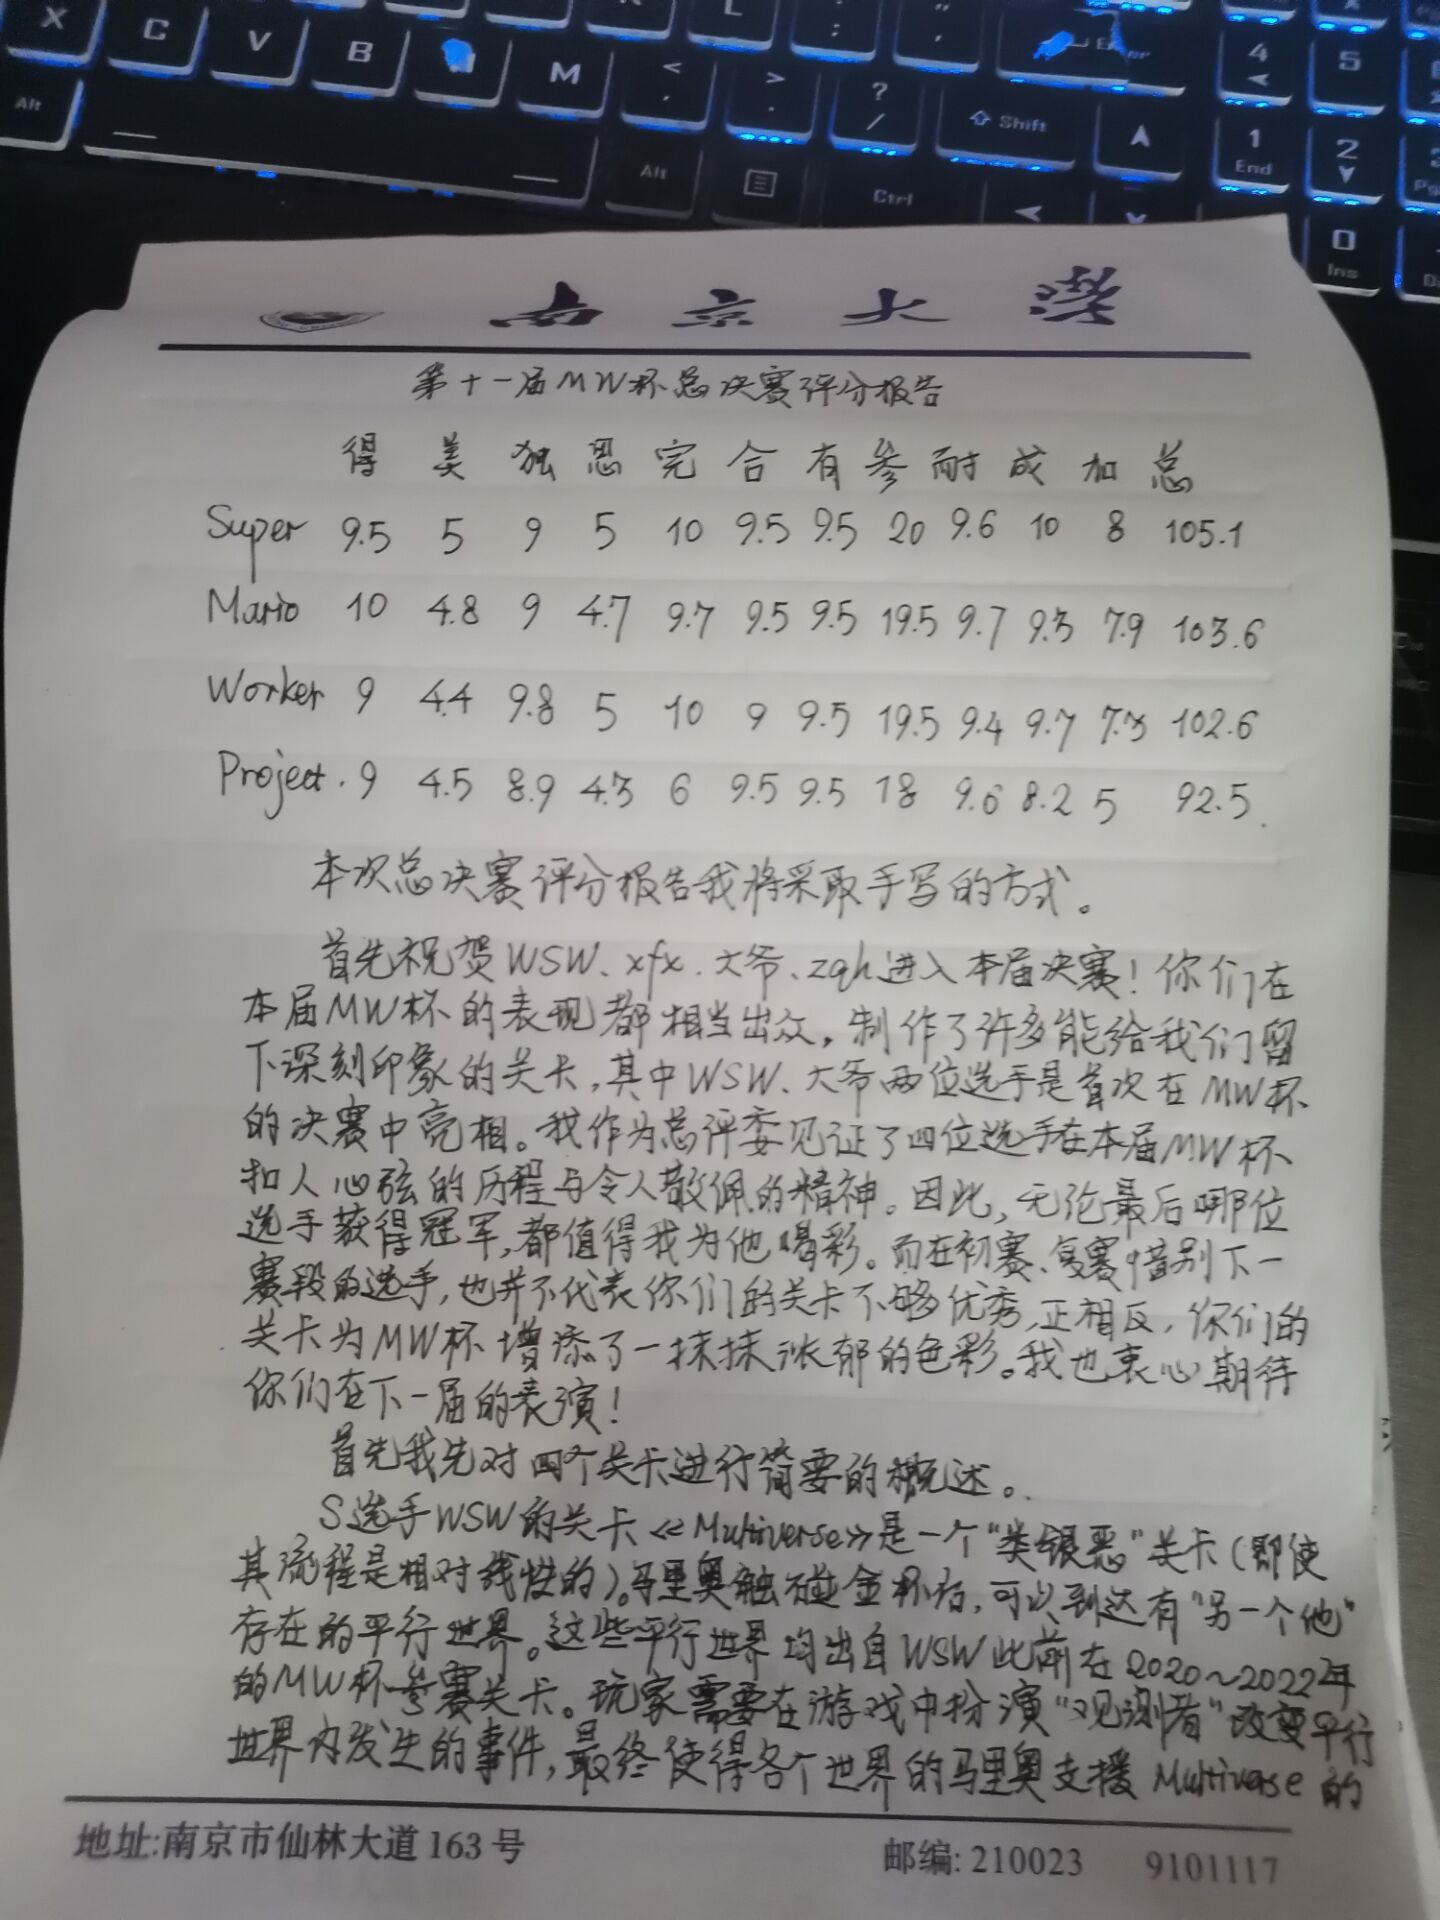 X C V B M < , > . ? / Shift 4 5
Alt Alt Ctrl 1 End 2 0 Ins
南京大学
第十一届MW杯总决赛评分报告
得 美 独 恶 完 合 有 参 耐 成 加 总
Super 9.5 5 9 5 10 9.5 9.5 20 9.6 10 8 105.1
Mario 10 4.8 9 4.7 9.7 9.5 9.5 19.5 9.7 9.3 7.9 103.6
Worker 9 4.4 9.8 5 10 9 9.5 19.5 9.4 9.7 7.3 102.6
Project. 9 4.5 8.9 4.3 6 9.5 9.5 18 9.6 8.2 5 92.5.
本次总决赛评分报告我将采取手写的方式。
首先祝贺WSW、xfx、大爷、zqh进入本届决赛!你们在
本届MW杯的表现都相当出众,制作了许多能给我们留
下深刻印象的关卡,其中WSW、大爷两位选手是首次在MW杯
的决赛中亮相。我作为总评委见证了四位选手在本届MW杯
扣人心弦的历程与令人敬佩的精神。因此,无论最后哪位
选手获得冠军,都值得我为他喝彩。而在初赛、复赛惜别下一
赛段的选手,也并不代表你们的关卡不够优秀,正相反,你们的
关卡为MW杯增添了一抹抹浓郁的色彩。我也衷心期待
你们在下一届的表演!
首先我先对四个关卡进行简要的概述。
S选手WSW的关卡《Multiverse》是一个“类银恶”关卡(即使
其流程是相对线性的)。马里奥触碰金杯后,可以到达有“另一个他”
存在的平行世界。这些平行世界均出自WSW此前在2020~2022年
的MW杯参赛关卡。玩家需要在游戏中扮演“观测者”改变平行
世界内发生的事件,最终使得各个世界的马里奥支援Multiverse的
地址:南京市仙林大道163号 邮编: 210023 9101117